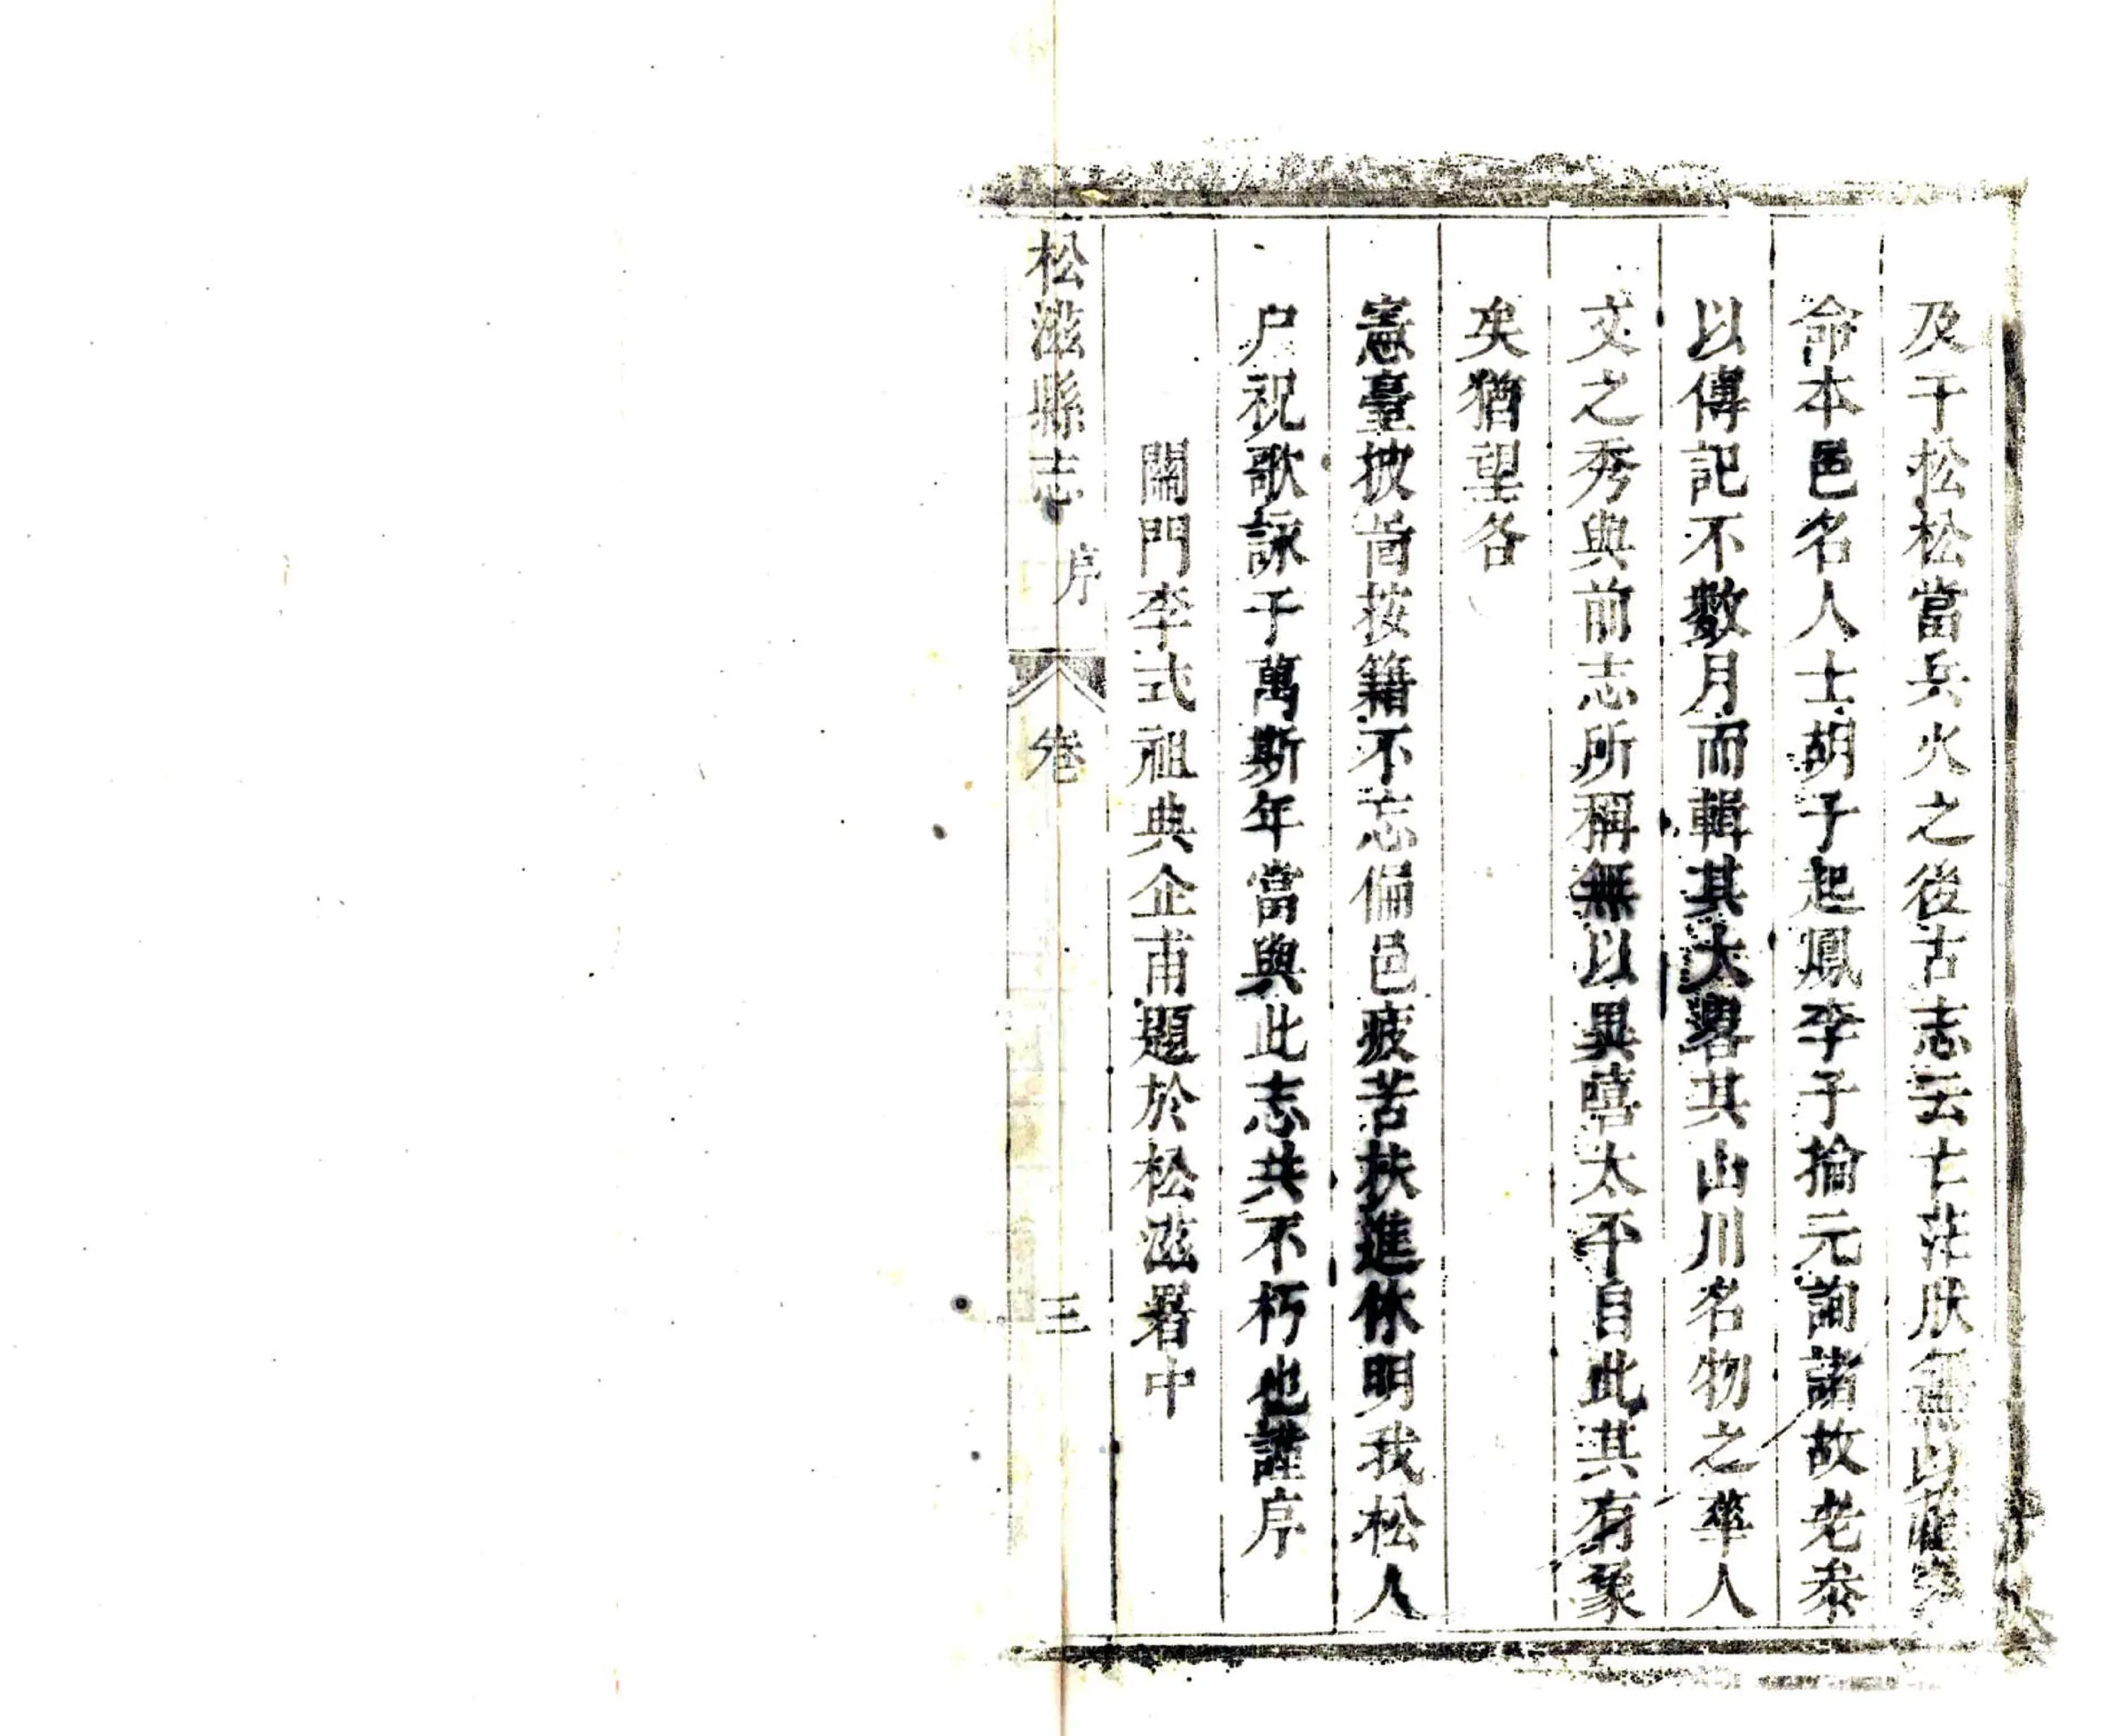 及于松松當兵火之後古志云亡茫肰無以
命本邑名人士胡子起鳳李子掄元詢諸故老叅
以傳記不數月而輯其大畧其山川名物之華人
文之秀與前志所稱無以異嘻太平自此其有象
矣猶望各
憲臺披啚按籍不忘偏邑疲苦扶進休明我松人
户祝歌詠于萬斯年當與此志共不朽也謹序
關門李式祖典企甫題於松滋署中
松滋縣志 序 卷 三